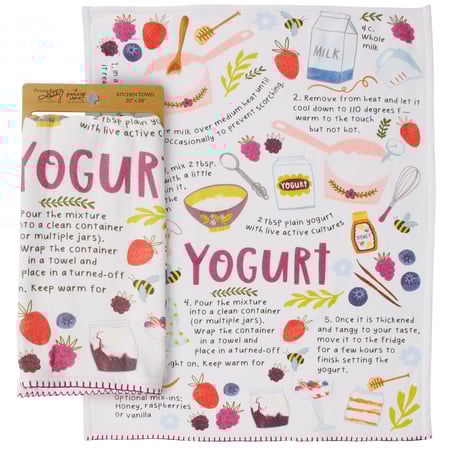 KITCHEN TOWEL
20" x 28"
2 TBSP plain yogurt
with live active cu
YOGUR
Pour the mixture
into a clean container
(or multiple jars).
Wrap the container
in a towel and
place in a turned-off
n. Keep warm for
1. In a
it, rea
Do no
milk over medium heat until
occasionally to prevent scorching.
MILK
4 c.
Whole
milk
2. Remove from heat and let it
cool down to 110 degrees F—
warm to the touch
but not hot.
, mix 2 TBSP.
with a little
in it,
the
YOGURT
2 TBSP plain yogurt
with live active cultures
HONEY
YOGURT
4. Pour the mixture
into a clean container
(or multiple jars).
Wrap the container
in a towel and
place in a turned-off
ght on. Keep warm for
5. Once it is thickened
and tangy to your taste,
move it to the fridge
for a few hours to
finish setting the
yogurt.
Optional mix-ins:
Honey, raspberries
or vanilla